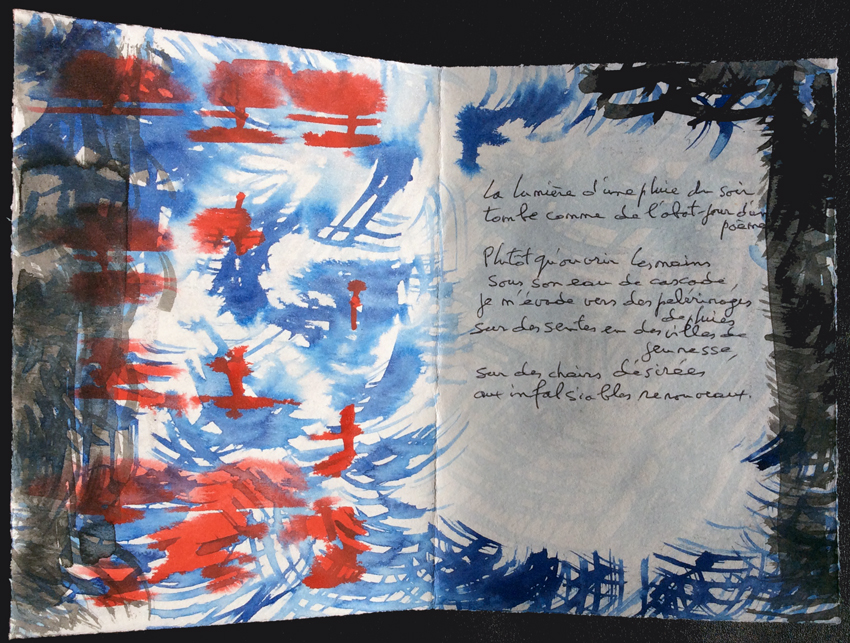 La lumière d'une pluie du soir
tombe comme de l'abat-jour d'un
poème
Plutôt qu'ouvrir les mains
sous son eau de cascade,
je m'évade vers des pèlerinages
de pluies
sur des sentes en des villes de
jeunesse,
sur des chairs désirées
aux infalsiables renouveaux.